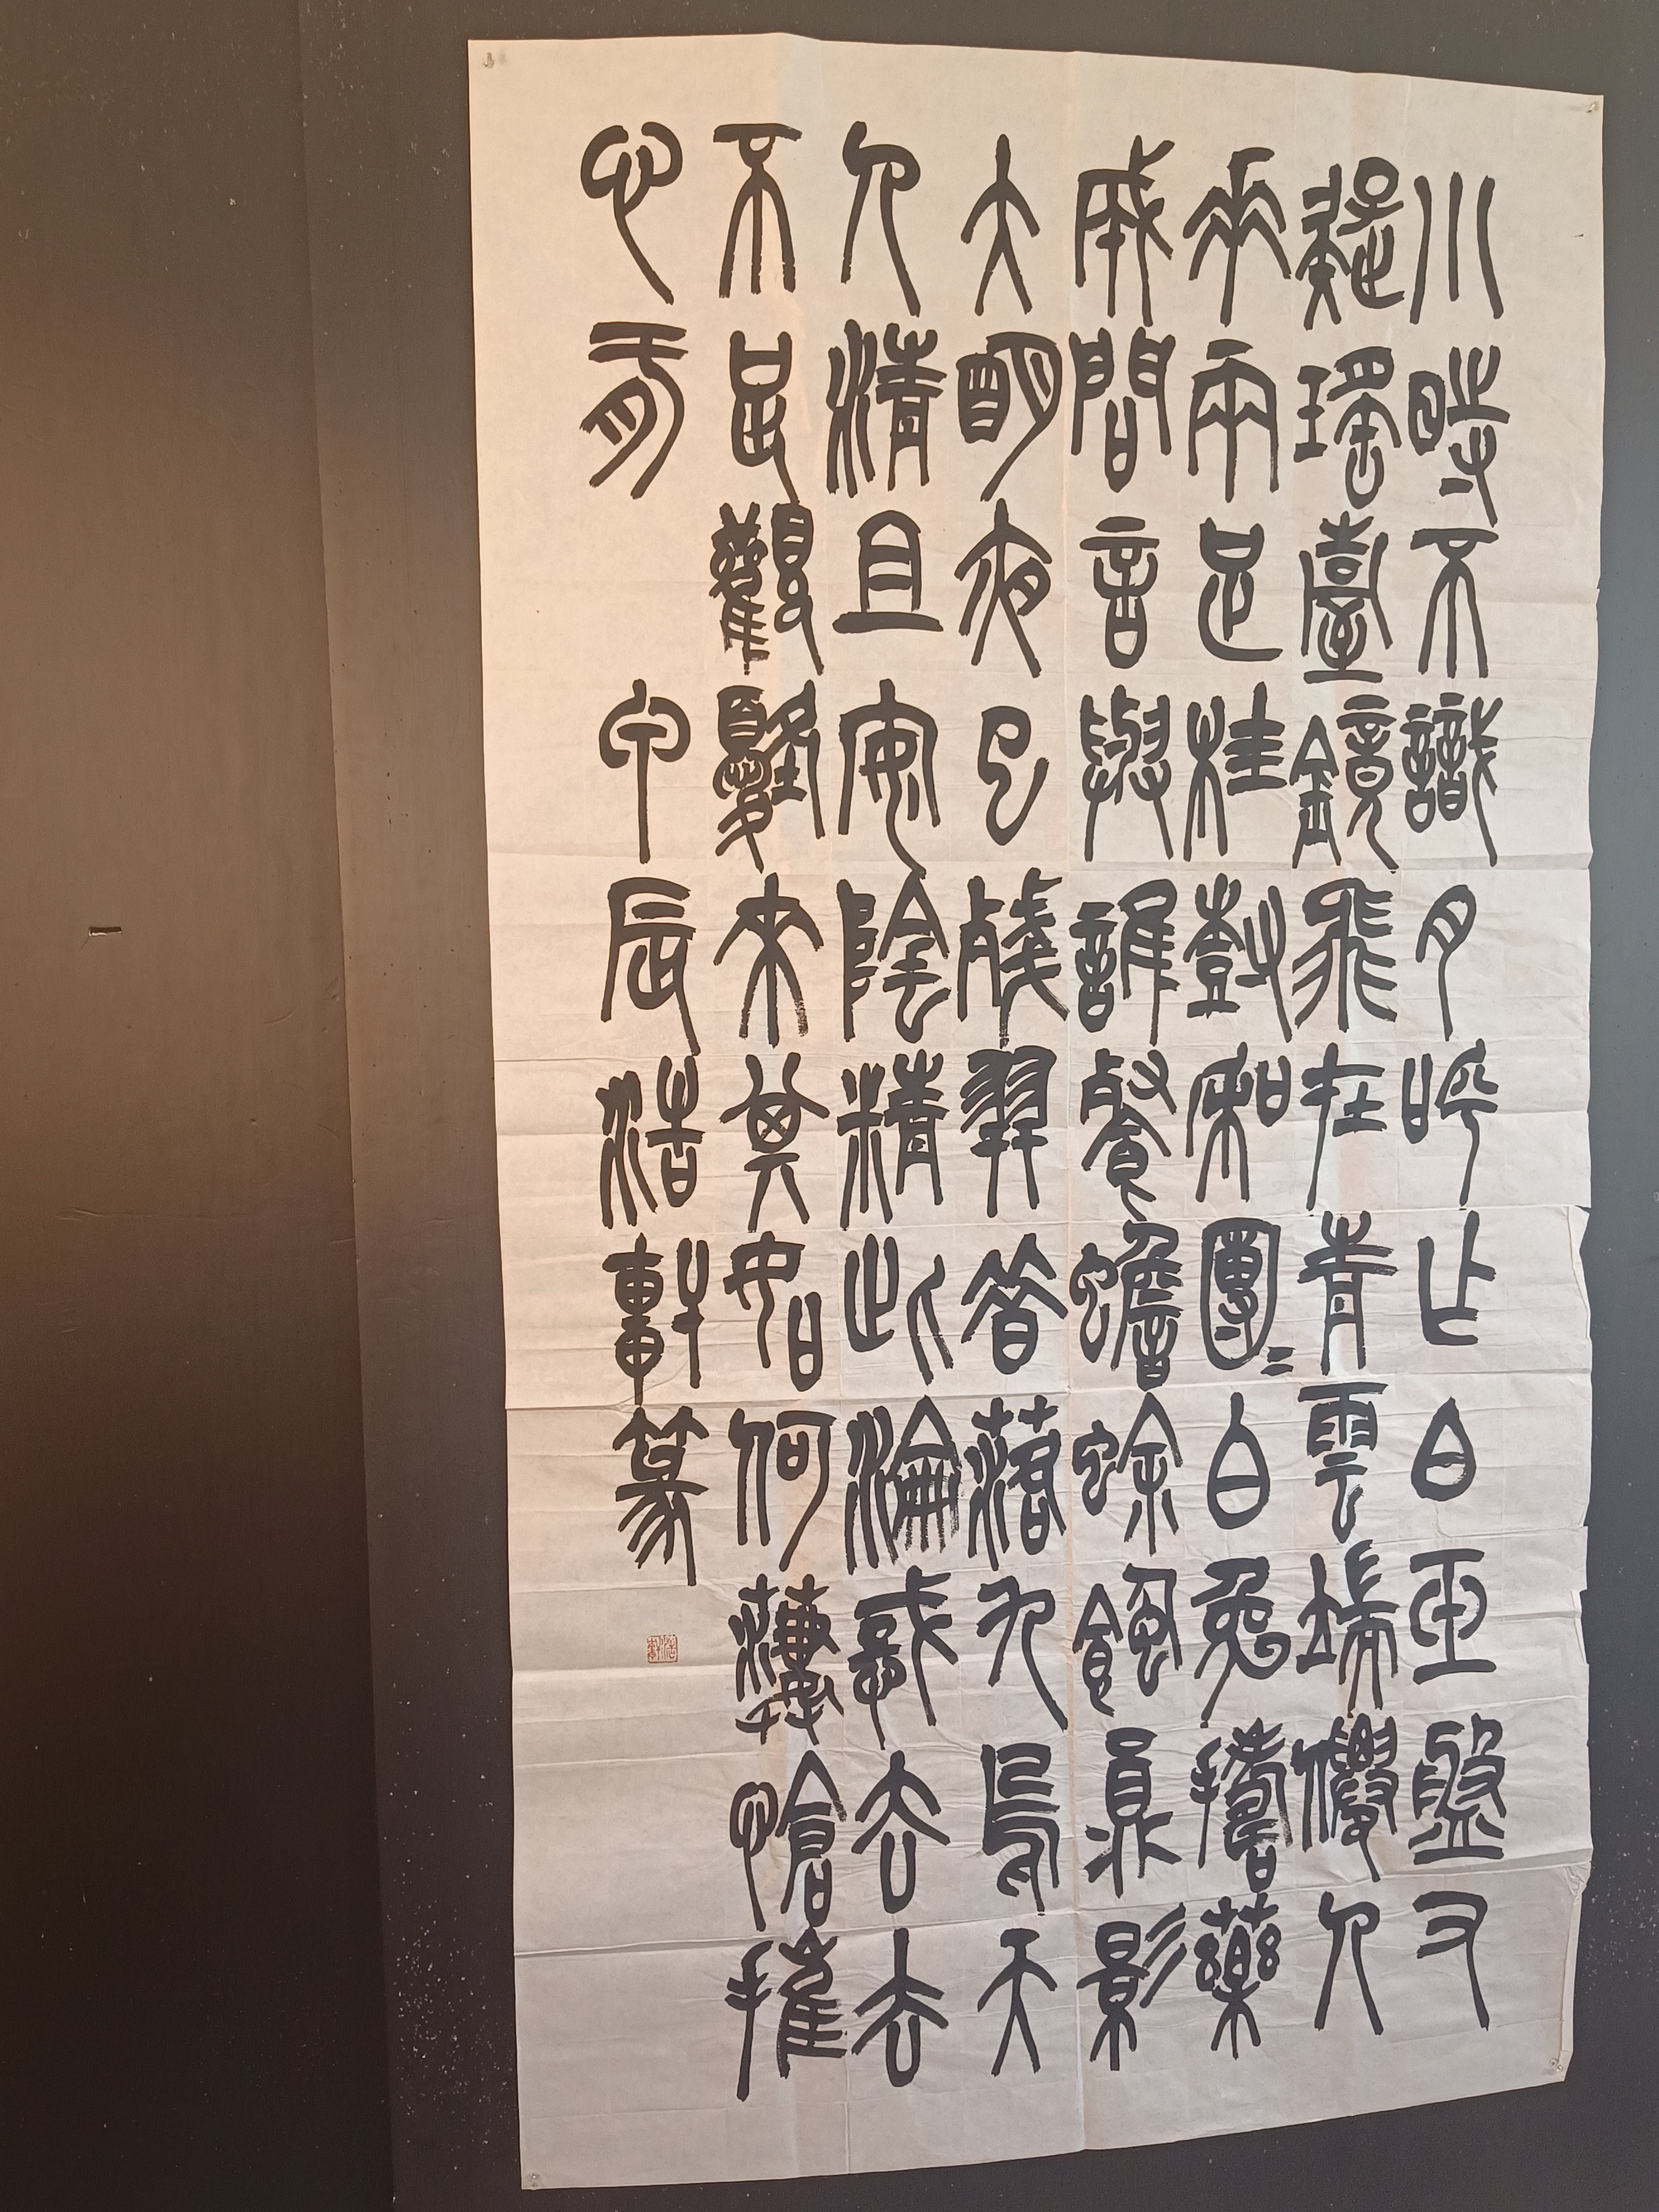 小時不識月呼作白玉盤又
疑瑤臺鏡飛在青雲端僊人
垂兩足桂樹和團〻白兔擣藥
成問言與誰餐蟾蜍蝕員影
大明夜已殘羿昔落九烏天
人清且安陰精此淪惑去去
不足觀憂來其如何淒愴摧
心肝 甲辰浩軒篆